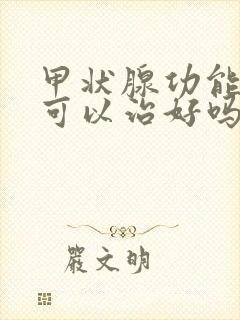 甲状腺功能
可以治好吗
嚴文明